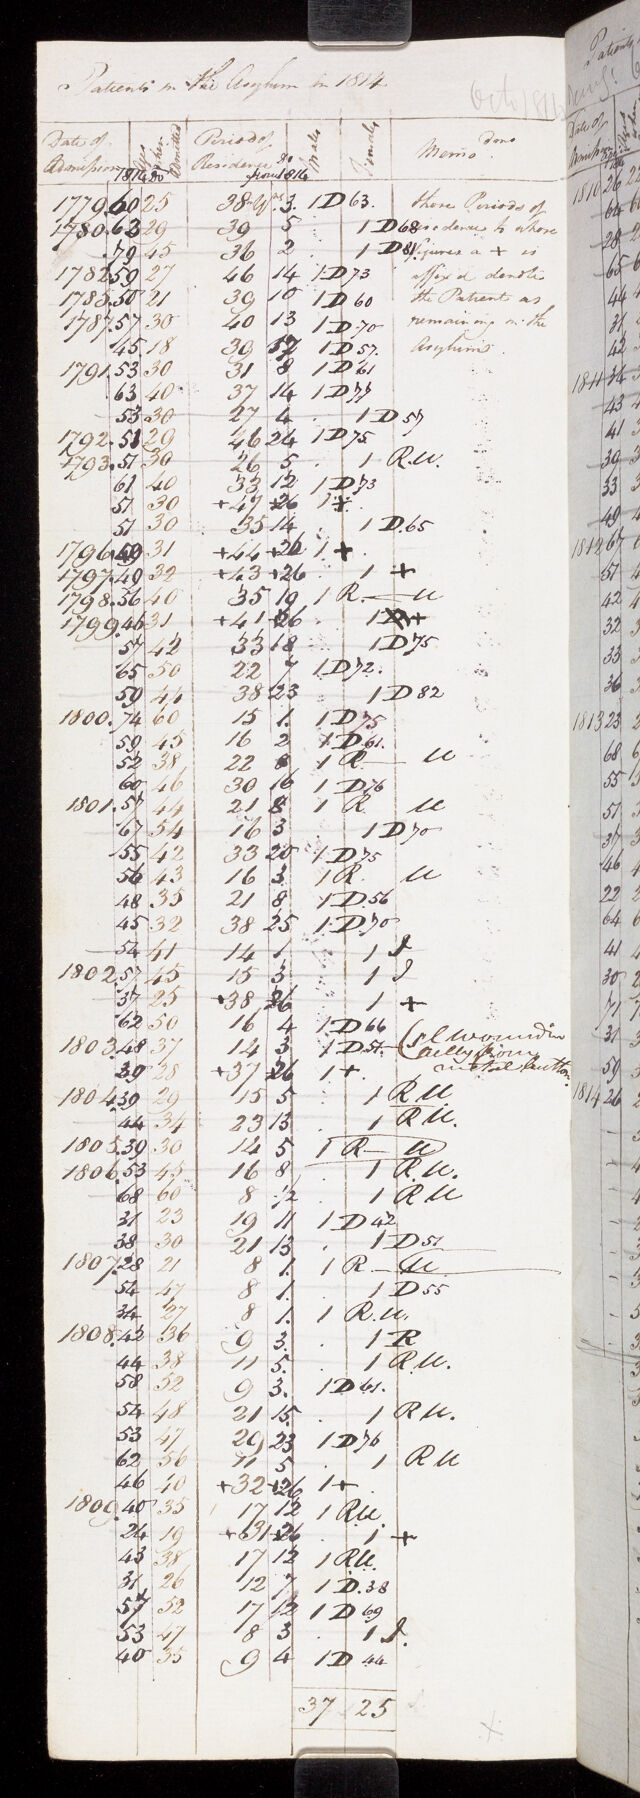 Patients in the Asylum in 1814
Date of Admission 1814 Age when Admitted Periods of Residence do from 1814 Males Females Memo dms
1779 60 25 38 Yrs 3. 1 D 63. those Periods of
1780 62 29 39 5 1 D 68 residence to whose
79 45 36 2 1 D 81 figures a + is
1782 59 27 46 14 1 D 73 affix'd denote
1783 50 21 39 10 1 D 60 the Patient as
1787 57 30 40 13 1 D 70 remaining in the
45 18 39 12 1 D 57. Asylum.
1791 53 30 31 8 1 D 61
63 40 37 14 1 D 77
53 30 27 4 1 D 57
1792 51 29 46 24 1 D 75
1793 51 30 26 5 1 R.U.
61 40 33 12 1 D 73
51 30 +47 +26 1 +
51 30 35 14 1 D. 65
1796 49 31 +44 +26 1 +
1797 49 32 +43 +26 1 +
1798 56 40 35 19 1 R — U
1799 46 31 +41 +26 1 +
57 42 33 18 1 D 75
65 50 22 7 1 D 72.
59 44 38 23 1 D 82
1800 74 60 15 1. 1 D 75
59 45 16 2 1 D 61.
52 38 22 8 1 R — U
60 46 30 16 1 D 76
1801 57 44 21 8 1 R U
67 54 16 3 1 D 70
55 42 33 20 1 D 75
56 43 16 3 1 R. U
48 35 21 8 1 D 56
45 32 38 25 1 D 70
54 41 14 1 1 I
1802 57 45 15 3 1 I
37 25 +38 +26 1 +
62 50 16 4 1 D 66
1803 48 37 14 3 1 D 51
39 28 +37 +26 1 + metal button
1804 39 29 15 5 1 R U
44 34 23 13 1 R U.
1805 39 30 14 5 1 R — U
1806 53 45 16 8 1 R.U.
68 60 8 1/2 1 R U
31 23 19 11 1 D 42
38 30 21 13 1 D 51
1807 28 21 8 1. 1 R — U
54 47 8 1. 1 D 55
34 27 8 1. 1 R.U.
1808 42 36 9 3. 1 R
44 38 11 5. 1 R U.
58 52 9 3. 1 D 61.
54 48 21 15. 1 R U.
53 47 29 23 1 D 76
62 56 11 5 1 R U
46 40 +32 +26 1 +
1809 40 35 17 12 1 RU
24 19 +31 +26 1 +
43 38 17 12 1 RU.
31 26 12 7 1 D. 38
57 52 17 12 1 D 69
53 47 8 3 1 I.
40 35 9 4 1 D 44
37 25
Date of
1810 26
64
28
65
44
31
42
1811 34
43
41
39
33
49
1812 67
51
42
32
33
36
1813 23
68
55
51
37
46
22
64
41
30
71
31
59
1814 26